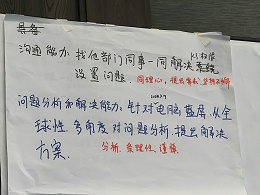 具备
沟通能力 找他部门同事一同解决系统
设置问题. 同理心,
问题分析和解决能力: 针对电脑蓝屏.从全
球性 多角度对问题分析.提出解决
方案. 分析.条理性.谨慎